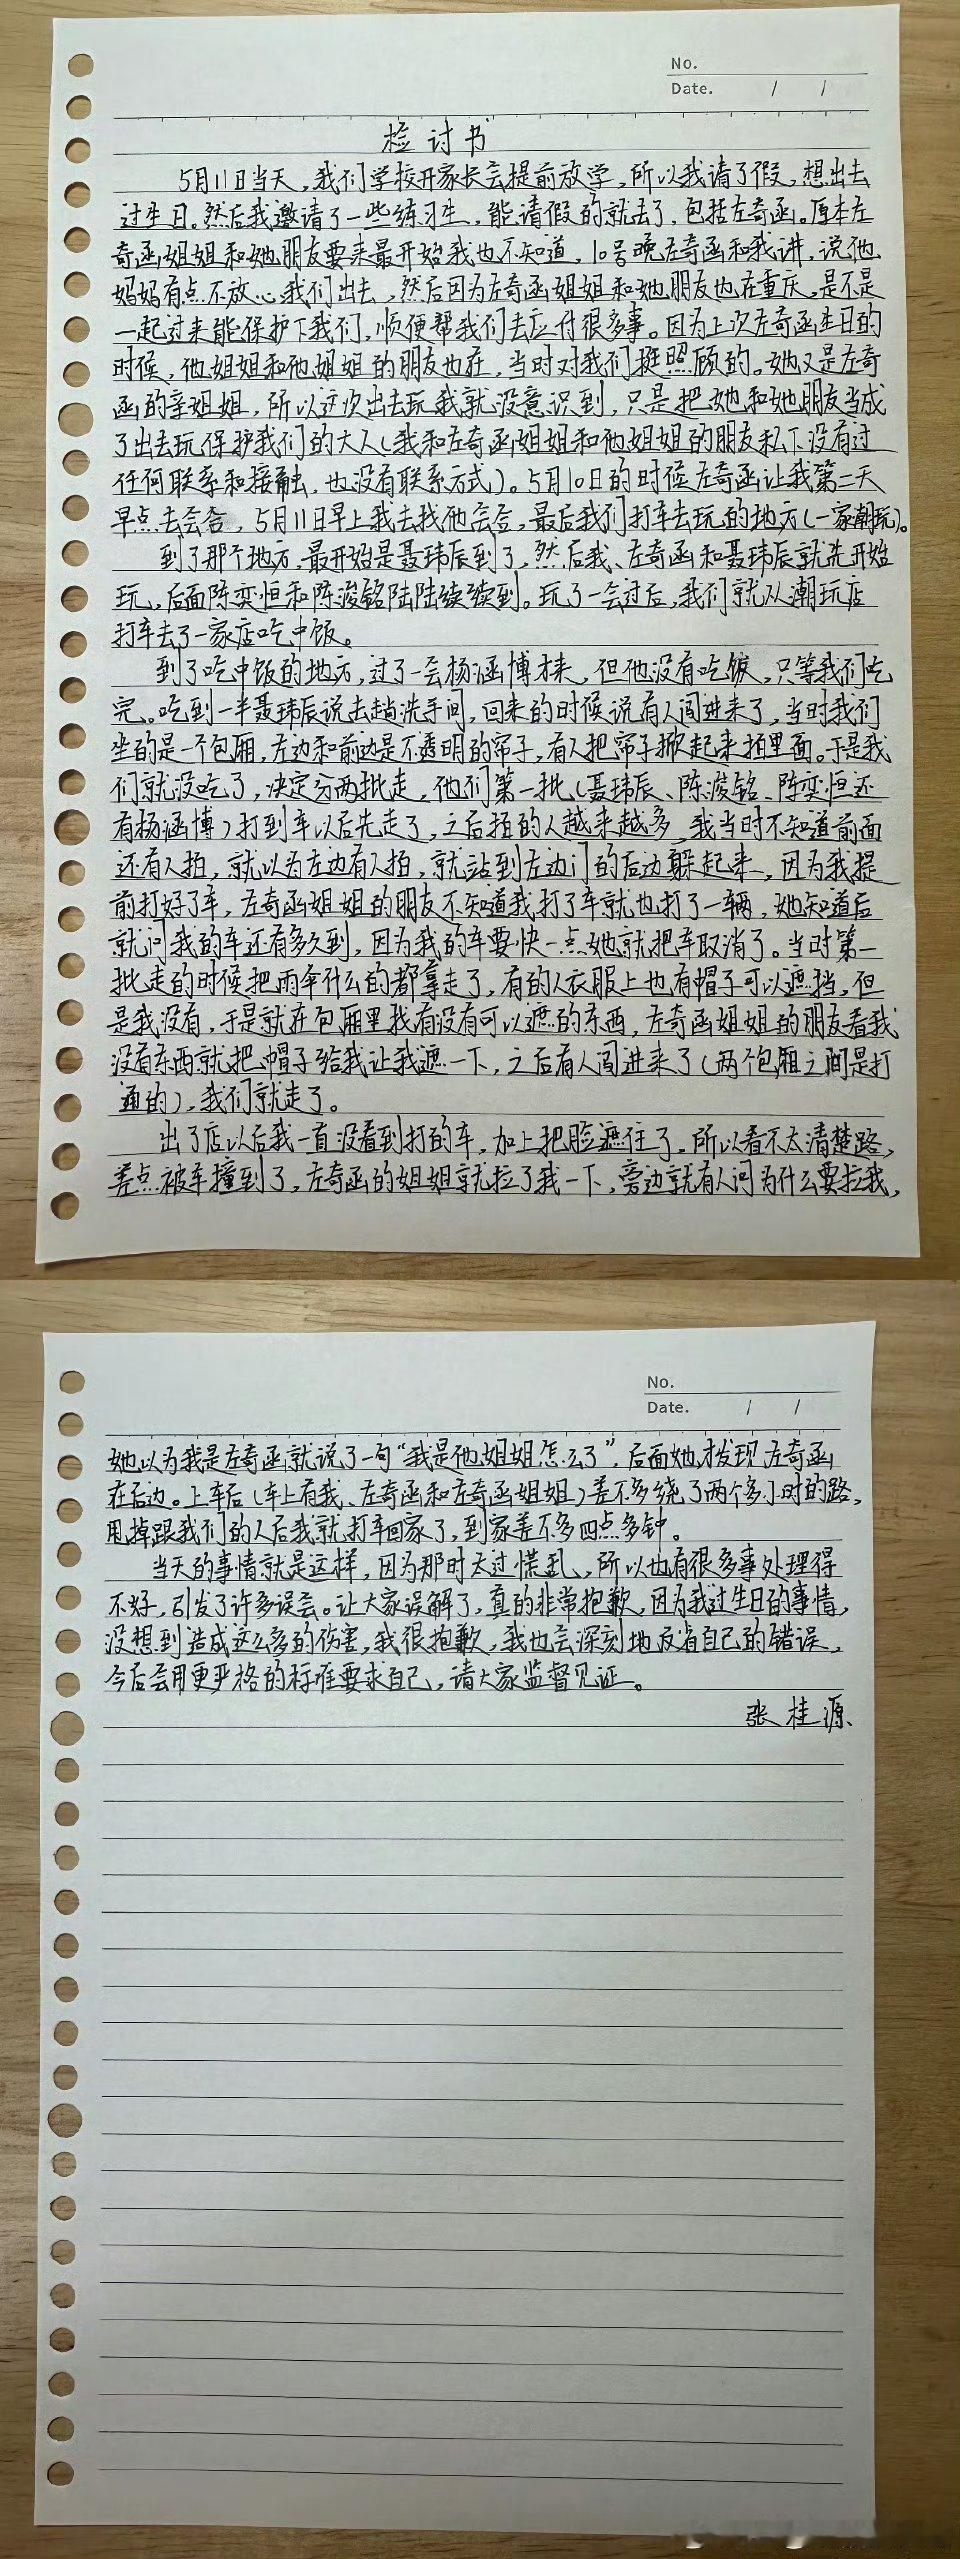 No.
Date. / /
检讨书
5月11日当天，我们学校开家长会提前放学，所以我请了假，想出去
过生日。然后我邀请了一些练习生，能请假的就去了，包括左奇函。原本左
奇函姐姐和她朋友要来最开始我也不知道，10号晚左奇函和我讲，说他
妈妈有点不放心我们出去，然后因为左奇函姐姐和她朋友也在重庆，是不是
一起过来能保护下我们，顺便帮我们去应付很多事。因为上次左奇函生日的
时候，他姐姐和他姐姐的朋友也在，当时对我们挺照顾的。她又是左奇
函的亲姐姐，所以这次出去玩我就没意识到，只是把她和她朋友当成
了出去玩保护我们的大人（我和左奇函姐姐和他姐姐的朋友私下没有过
任何联系和接触，也没有联系方式）。5月10日的时候左奇函让我第二天
早点去会合，5月11日早上我去找他会合，最后我们打车去玩的地方（一家潮玩）。
到了那个地方，最开始是聂玮辰到了，然后我、左奇函和聂玮辰就先开始
玩，后面陈奕恒和陈浚铭陆陆续续到。玩了一会过后，我们就从潮玩店
打车去了一家店吃中饭。
到了吃中饭的地方，过了一会杨涵博来，但他没有吃饭，只等我们吃
完。吃到一半聂玮辰说去趟洗手间，回来的时候说有人闯进来了，当时我们
坐的是一个包厢，左边和前边是不透明的帘子，有人把帘子掀起来拍里面。于是我
们就没吃了，决定分两批走，他们第一批（聂玮辰、陈浚铭、陈奕恒还
有杨涵博）打到车以后先走了，之后拍的人越来越多，我当时不知道前面
还有人拍，就以为左边有人拍，就站到左边门的后边躲起来，因为我提
前打好了车，左奇函姐姐的朋友不知道我打了车就也打了一辆，她知道后
就问我的车还有多久到，因为我的车要快一点她就把车取消了。当时第一
批走的时候把雨伞什么的都拿走了，有的人衣服上也有帽子可以遮挡，但
是我没有，于是就在包厢里找有没有可以遮的东西，左奇函姐姐的朋友看我
没有东西就把帽子给我让我遮一下，之后有人闯进来了（两个包厢之间是打
通的），我们就走了。
出了店以后我一直没看到打的车，加上把脸遮住了，所以看不太清楚路，
差点被车撞到了，左奇函的姐姐就拉了我一下，旁边就有人问为什么要拉我，
No.
Date. / /
她以为我是左奇函就说了一句“我是他姐姐怎么了”，后面她才发现左奇函
在后边。上车后（车上有我、左奇函和左奇函姐姐）差不多绕了两个多小时的路，
甩掉跟我们的人后我就打车回家了，到家差不多四点多钟。
当天的事情就是这样，因为那时太过慌乱，所以也有很多事处理得
不好，引发了许多误会。让大家误解了，真的非常抱歉，因为我过生日的事情，
没想到造成这么多的伤害，我很抱歉，我也会深刻地反省自己的错误，
今后会用更严格的标准要求自己，请大家监督见证。
张桂源